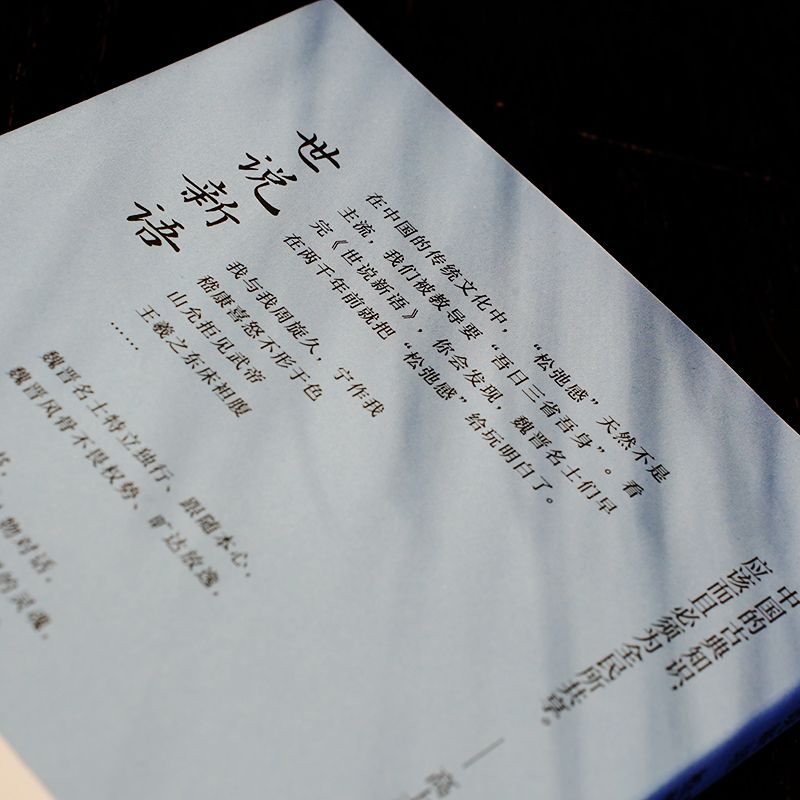 世说新语
在中国的传统文化中，“松弛感”天然不是
主流，我们被教导要“吾日三省吾身”。看
完《世说新语》，你会发现，魏晋名士们早
在两千年前就把“松弛感”给玩明白了。
我与我周旋久，宁作我
嵇康喜怒不形于色
山允拒见武帝
王羲之东床袒腹
……
魏晋名士特立独行、跟随本心，
魏晋风骨不畏权势、旷达放逸，
物对话，
的灵魂。
中国的古典知识，
应该而且必须为全民所共享。
——高